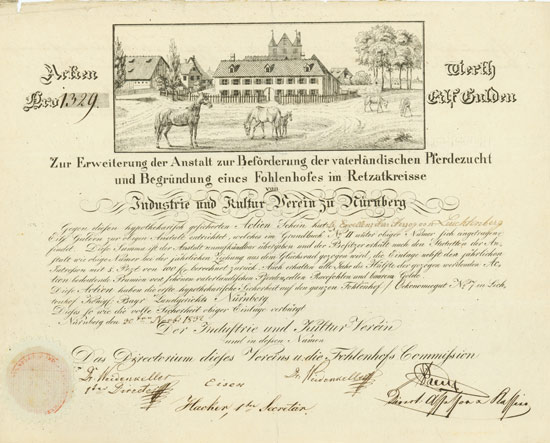 Actien
Nro 1329
Werth
Eilf Gulden
Zur Erweiterung der Anstalt zur Beförderung der vaterländischen Pferdezucht
und Begründung eines Fohlenhofes im Retzatkreisse
vom
Industrie und Kultur Verein zu Nürnberg
Gegen diesen hypothekarisch gesicherten Actien Schein hat
Eilf Gulden zur obigen Anstalt entrichtet, welches im Grundbuch N. II unter obiger Numer sich eingetragen
findet. Diese Summen ist der Anstalt unaufkündbar übergeben und der Besitzer erhält nach den Statuten der An-
stalt wie obiges Numer bey der jährlichen Ziehung aus dem Glücksrad gezogen wird, die Einlage nebst den jährlichen
Interessen mit 5. Pozt von 100 fl. berechnet zurück. Auch erhalten alle Jahre die Hälfte der gezogen werdenden Ac-
tien bedeutende Praemien von schönen vaterländischen Pferden, edlen Racefohlen und baarem Gelde.
Diese Actien finden die erste hypothekarische Sicherheit auf den ganzen Fohlenhof
Nürnberg
Dieses so wie die volle Sicherheit obiger Einlage verbürgt
Nürnberg den
Der Industrie und Kultur Verein
und in dessen Namen
Das Directorium dieses Vereins u. die Fohlenhofs Commission
Dr Weidenkeller
1ter Director
Eisen
Dr. Weidenkeller
Hacker, 1ter Secretär.